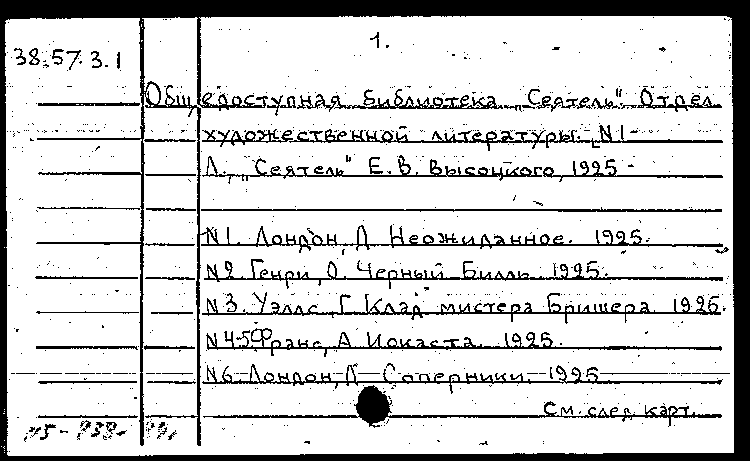 1.
38.57.3.1
Общедоступная библиотека „Сеятель". Отдел
художественной литературы. N1-
Л., „Сеятель" Е.В. Высоцкого, 1925 -
N1. Лондон, Д. Неожиданное. 1925.
N2. Генри, О. Черный Билль. 1925.
N3. Уэллс, Г. Клад мистера Бришера. 1925.
N4-5 Франс, А. Иокаста. 1925.
N6. Лондон, Д. Соперники. 1925
См. след. карт.